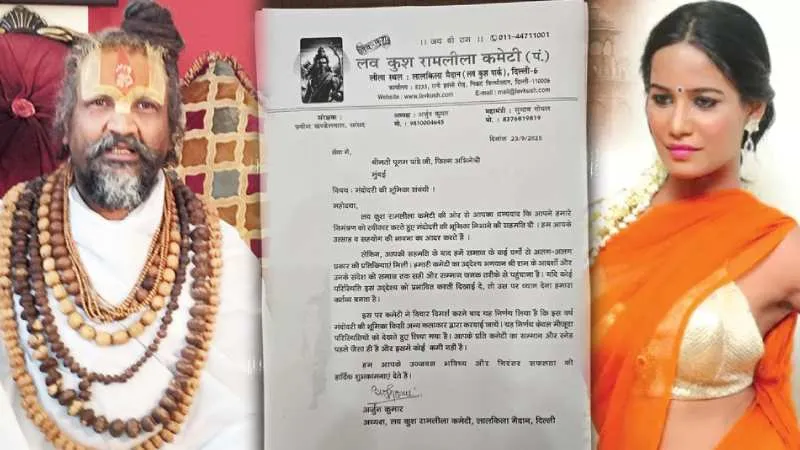 शिव कृपा
।। जय श्री राम ।।
011-44711001
लव कुश रामलीला कमेटी (पं.)
लीला स्थल : लालकिला मैदान (लव कुश पार्क), दिल्ली-6
Website : www.lavkush.com E-mail : mail@lavkush.com
संरक्षक :
प्रवीण खण्डेलवाल, सांसद
अध्यक्ष : अर्जुन कुमार
मो. : 9810004645
महामंत्री : सुभाष गोयल
मो. : 8376819819
दिनांक 23/9/2025
सेवा में,
श्रीमती पूनम पांडे जी, फिल्म अभिनेत्री
मुंबई
विषय : मंदोदरी की भूमिका संबंधी ।
महोदया,
लव कुश रामलीला कमेटी की ओर से आपका धन्यवाद कि आपने हमारे
निमंत्रण को स्वीकार करते हुए मंदोदरी की भूमिका निभाने की सहमति दी । हम आपके
उत्साह व सहयोग की भावना का आदर करते हैं ।
लेकिन, आपकी सहमति के बाद हमें समाज के कई वर्गों से अलग-अलग
प्रकार की प्रतिक्रियाएं मिलीं। हमारी कमेटी का उद्देश्य भगवान श्री राम के आदर्शों और
उनके संदेश को समाज तक सही और सम्मान जनक तरीके से पहुंचाना है। यदि कोई
परिस्थिति इस उद्देश्य को प्रभावित करती दिखाई दे, तो उस पर ध्यान देना हमारा
कर्तव्य बनता है।
इस पर कमेटी ने विचार विमर्श करने बाद यह निर्णय लिया है कि इस वर्ष
मंदोदरी की भूमिका किसी अन्य कलाकार द्वारा करवाई जाये। यह निर्णय केवल मौजूदा
परिस्थितियों को देखते हुए लिया गया है। आपके प्रति कमेटी का सम्मान और स्नेह
पहले जैसा ही है और इसमें कोई कमी नहीं है।
हम आपके उज्जवल भविष्य और निरंतर सफलता की
हार्दिक शुभकामनाएं देते हैं।
अर्जुन कुमार
अध्यक्ष, लव कुश रामलीला कमेटी, लालकिला मैदान, दिल्ली